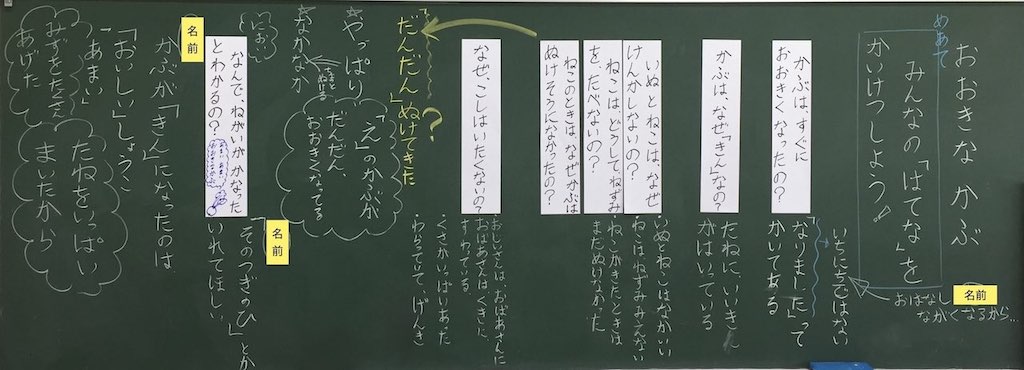 おおきな かぶ
めあて
みんなの「はてな」を
かいけつしよう!
名前
おはなし
ながくなるから…
いちにちではない
かぶは、すぐに
おおきく なったの?
「なりました」って
かいてある
かぶは、なぜ「きん」なの?
たねに、いいきん
がはいっている
いぬと ねこは、なぜ
けんかしないの?
ねこは、どうして、ねずみ
を、たべないの?
ねこのときは、なぜ かぶは
ぬけ そうに なかったの?
・いぬとねこはなかいい
・ねこはねずみみえない
・ねこがきたときは
まだぬけなかった
なぜ、こしは いたくないの?
・おじいさんは、おばあさんに
おばあさんはくきに、
すわっている。
・くさがいっぱいあった
・わらっていて、げんき
「だんだん」ぬけてきた
?
やっぱり
なかなか
「え」のかぶが
だんだん、
おおきくなってる
なんで、ねがいが かなった
とわかるの?
名前
「そのつぎのひ」とか
いれてほしい。
名前
かぶが「きん」になったのは
「おいしい」しょうこ
「あまい」
たねをいっぱい
まいたから
みずをたくさん
あげた